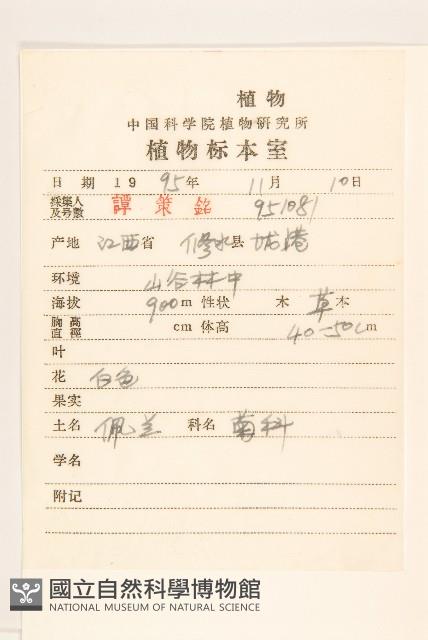 植物
中国科学院植物研究所
植物标本室
日 期 19 95年 11月 10日
採集人及号数 譚策銘 951081
产地 江西省 修水县 城塆
环境 山谷林中
海拔 900m 性状 木 草本
胸高直徑 cm 体高 40-50cm
叶
花 白色
果实
土名 佩兰 科名 菊科
学名
附记
國立自然科學博物館
NATIONAL MUSEUM OF NATURAL SCIENCE